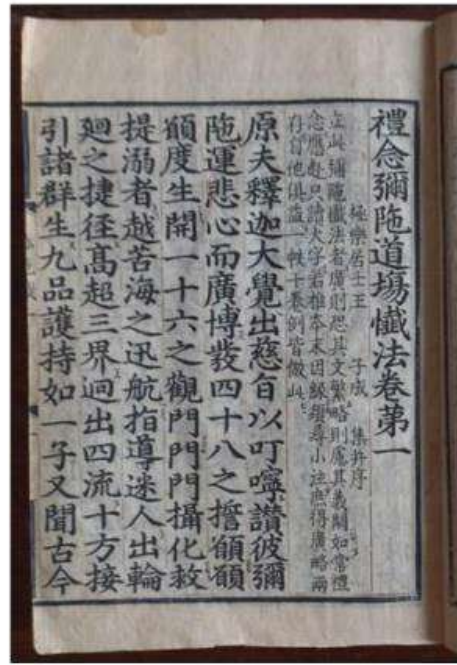 禮念彌陁道場懺法卷第一
極樂居士王 子成 集并序
立此彌陁懺法者廣則恐其文繁略則慮其義闕如常禮
念應赴只讀大字若推本末因緣須尋小注庶得廣略兩
存自他俱益一帙十卷例皆倣此
原夫釋迦大覺出慈旨以叮嚀讃彼彌
陁運悲心而廣博發四十八之誓願願
願度生開一十六之觀門門門攝化救
提溺者越苦海之迅航指導迷人出輪
廻之捷徑高超三界迥出四流十方接
引諸群生九品護持如一子又聞古今